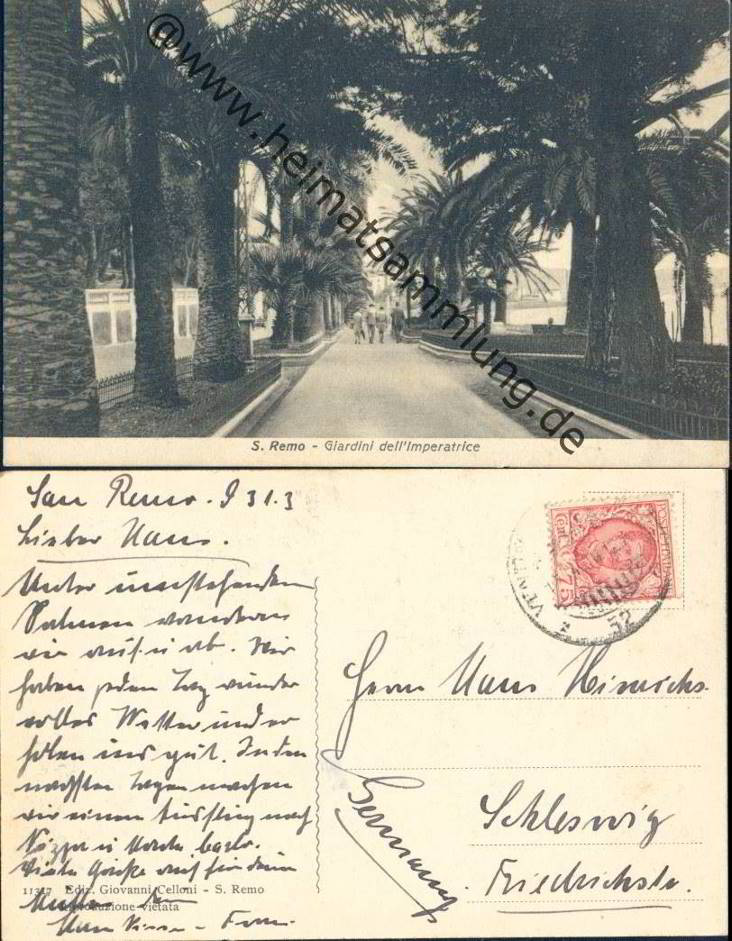 @www.heimatsammlung.de
S. Remo - Giardini dell'Imperatrice
San Remo. 9 31.3
Lieber Hans.
Unter umstehenden
Palmen wandern
wir auf u ab. Wir
haben jeden Tag wunder
volles Wetter und er
holen uns gut. In den
nächsten Tagen machen
wir einen Ausflug nach
Nizza u Monte Carlo.
Viele Grüße auf für deine
Mutter
Hans
11317 Ediz. Giovanni Celloni - S. Remo
Riproduzione vietata
CENT. 75
32
Herrn Hans Hinrichs.
Schleswig
Friedrichstr.
Germany